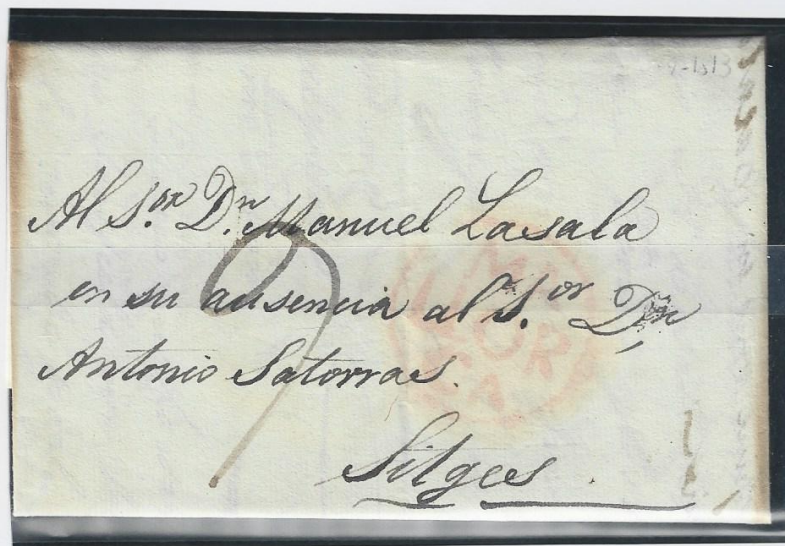 Al S.or D.n Manuel Lasala
en su ausencia al S.or Dn
Antonio Satorras.
Sitges.
9